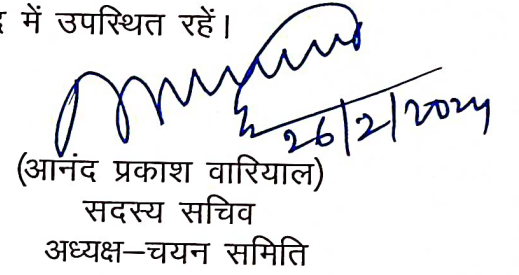 में उपस्थित रहें।
26/2/2024
(आनंद प्रकाश वारियाल)
सदस्य सचिव
अध्यक्ष–चयन समिति